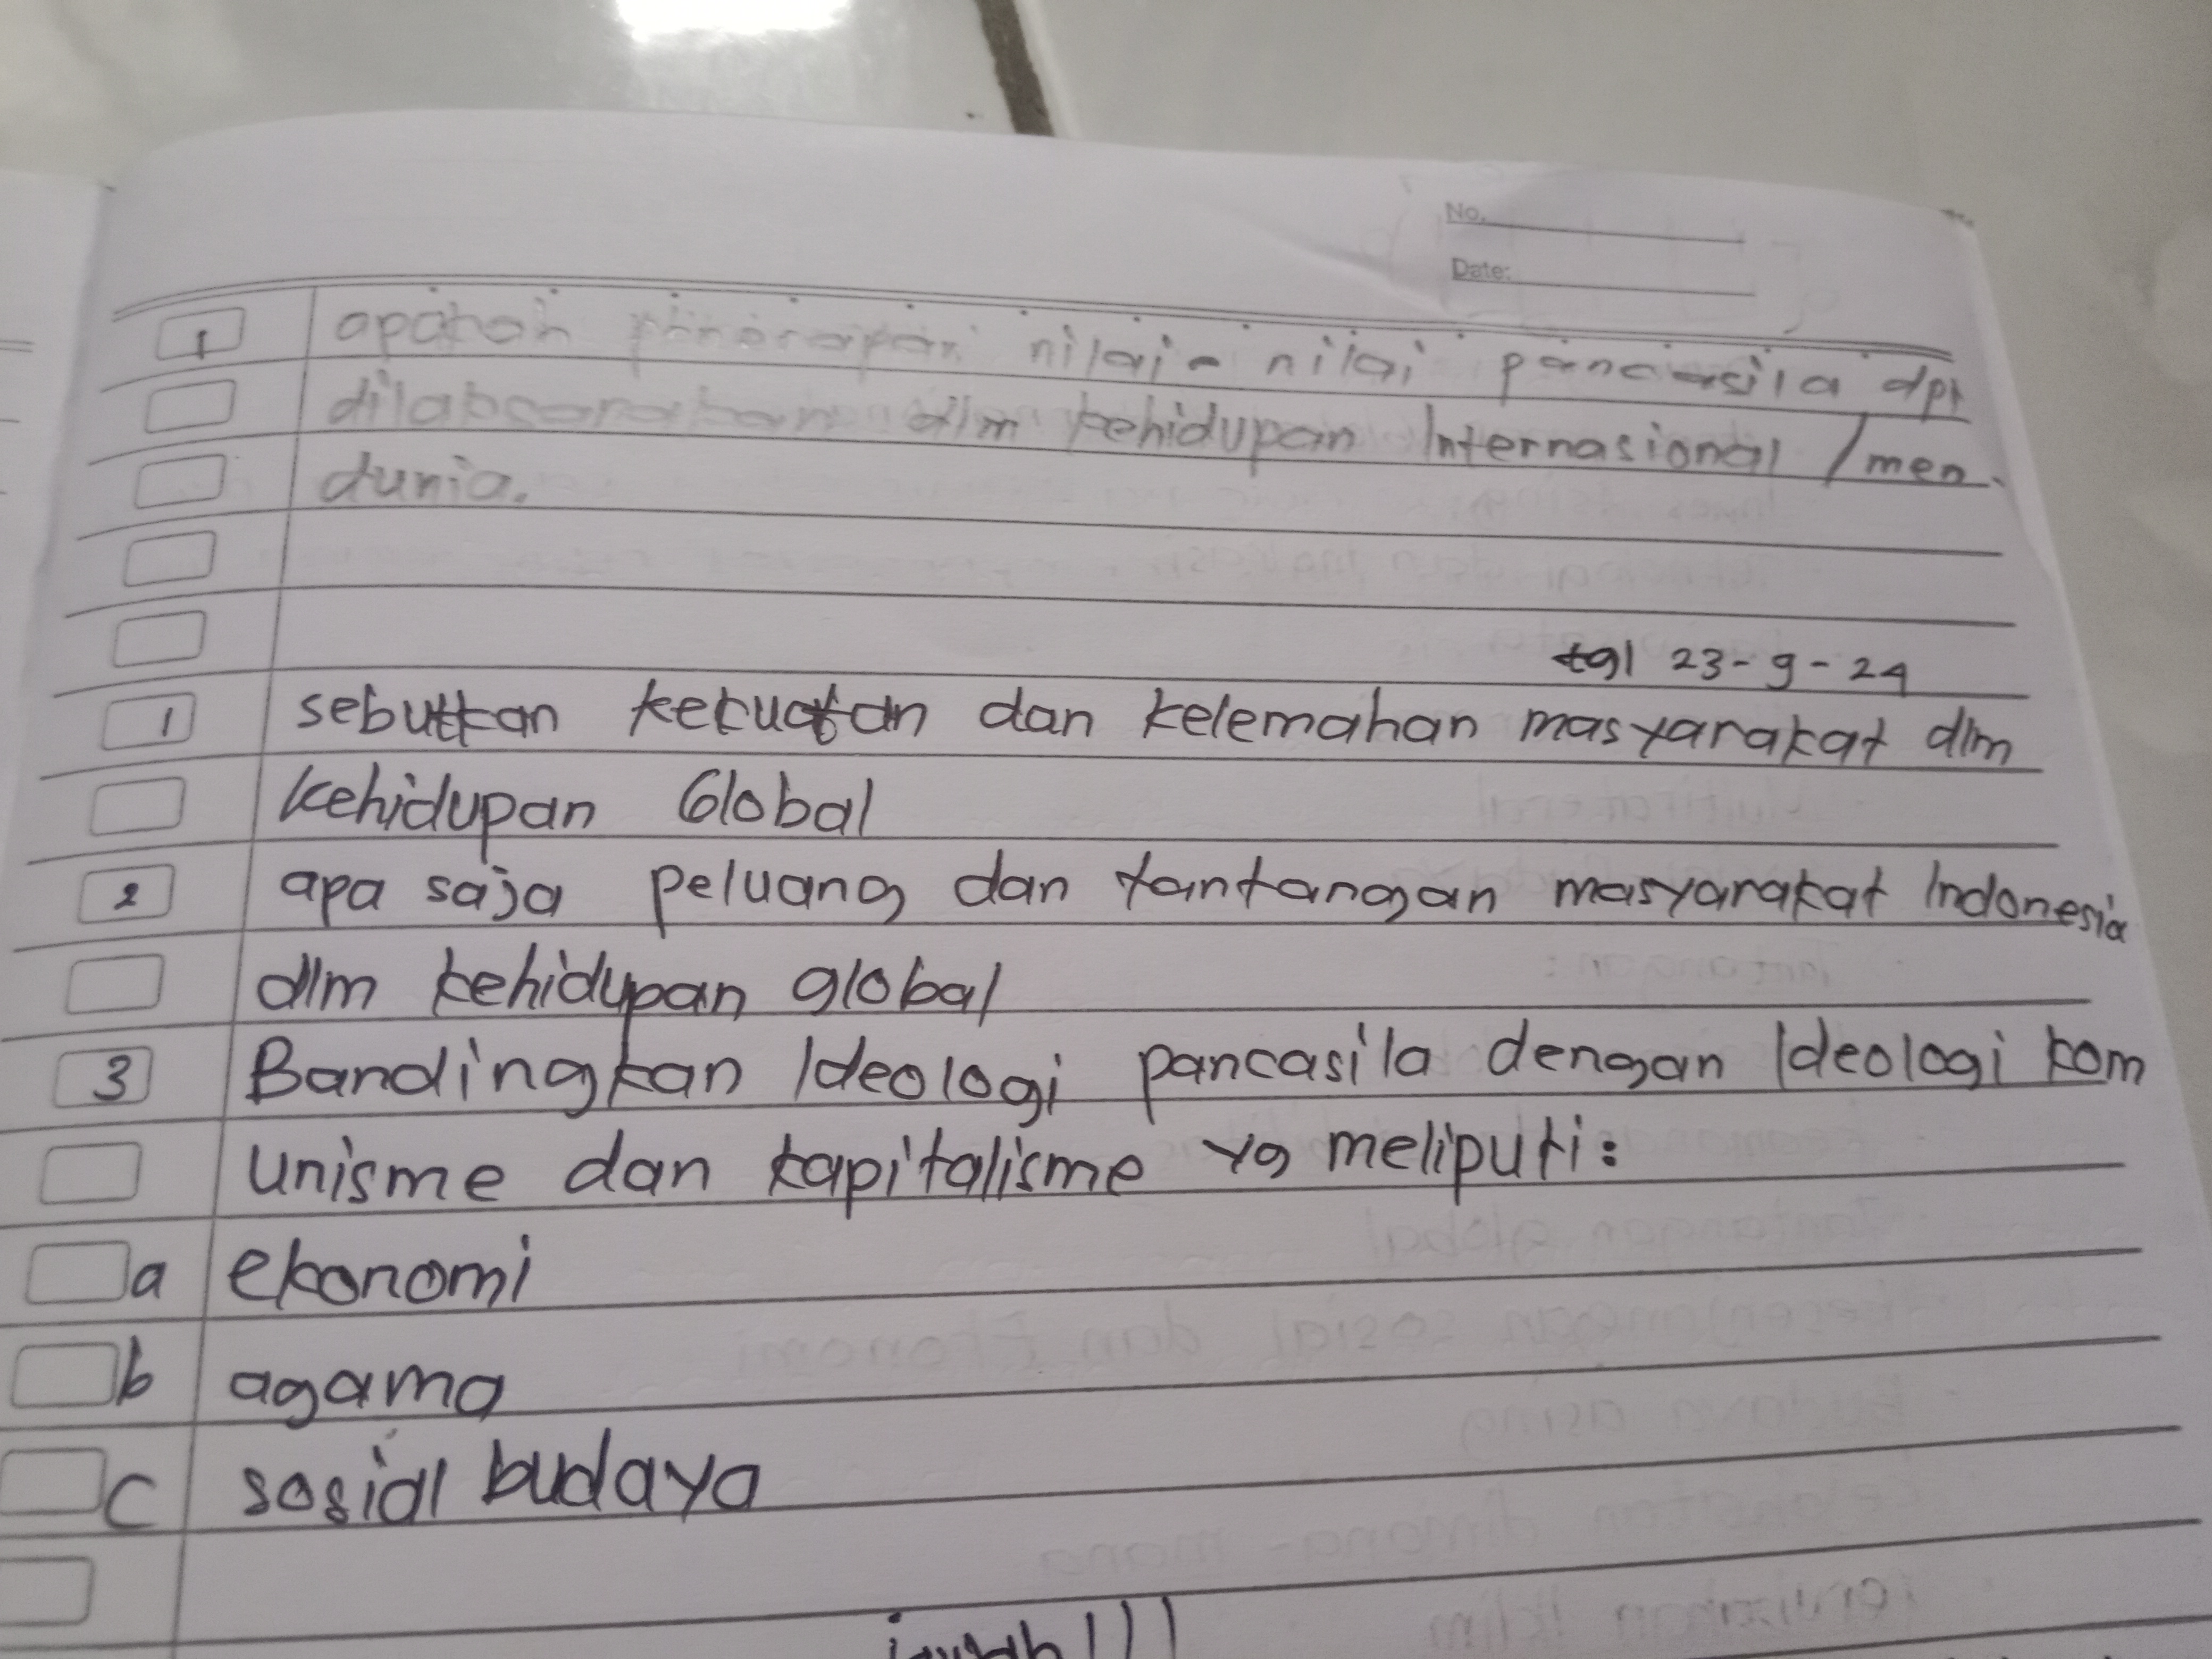 No.
Date:
1 apakah penerapan nilai - nilai pancasila dpt
dilaksanakan dlm kehidupan Internasional / men
dunia.
tgl 23 - 9 - 24
1 sebutkan kekuatan dan kelemahan masyarakat dlm
kehidupan Global
2 apa saja peluang dan tantangan masyarakat Indonesia
dlm kehidupan global
3 Bandingkan Ideologi pancasila dengan Ideologi kom
unisme dan kapitalisme yg meliputi:
a ekonomi
b agama
c sosial budaya